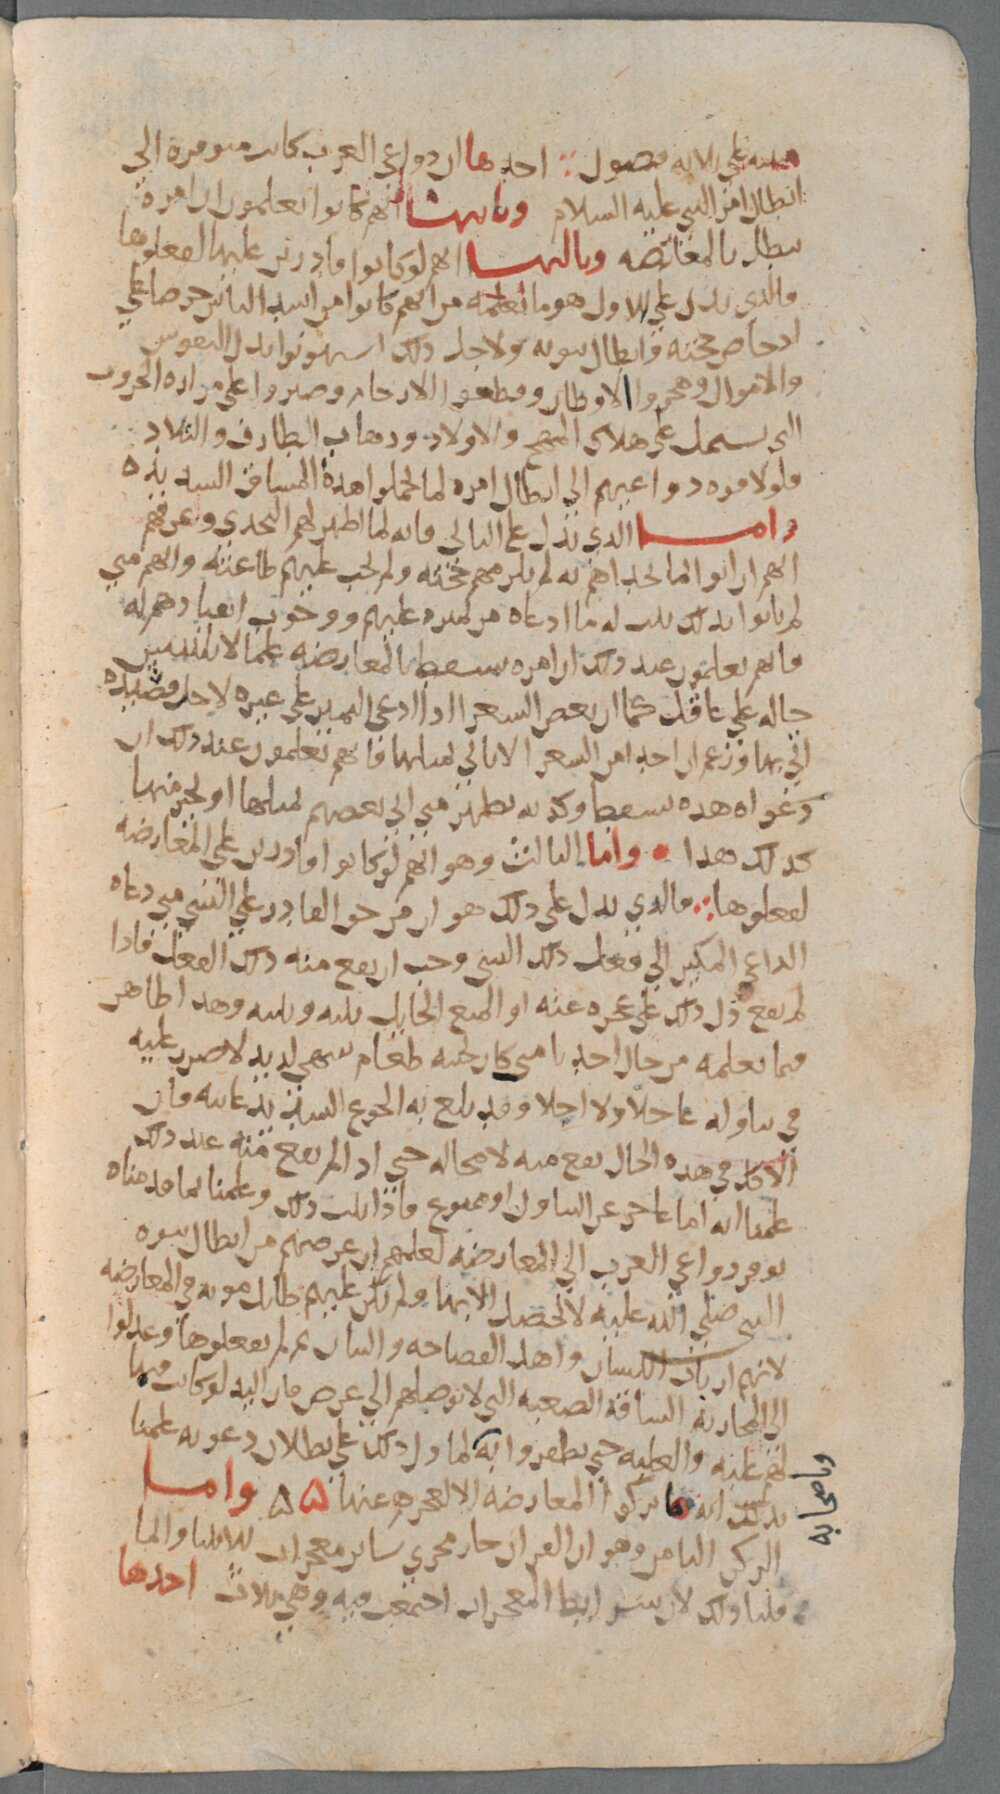 مبنيه على ثلاثه فصول احدها ان دواعي العرب كانت متوفرة الى
ابطال امر النبي عليه السلام وثانيها انهم كانوا يعلمون ان امره
يبطل بالمعارضه وثالثها انهم لو كانوا قادرين عليها لفعلوها
والذي يدل على الاول هو ما نعلمه من انهم كانوا من اشد الناس حرصا على
ادحاض حجته وابطال نبوته ولاجل ذلك استهونوا بذل النفوس
والاموال وهجروا الاوطان وقطعوا الارحام وصبروا على مرارة الحروب
التي تشتمل على هلاك المهج والاولاد وذهاب الطارف والتلاد
فلولا قوه دواعيهم الى ابطال امره لما تحملوا هذه المشاق الشديده
واما الذي يدل على الثاني فانه لما اظهر لهم التحدي وعرفهم
انهم ان اتوا بما تحداهم به لم تلزمهم حجته ولم تجب عليهم طاعته وانهم متى
لم ياتوا بذلك ثبت له ما ادعاه من تميزه عليهم ووجوب انقيادهم له
فانهم يعلمون عند ذلك ان امره يسقط بالمعارضه علما لا يلتبس
حاله على عاقل كما ان بعض الشعرا اذا ادعى التميز على غيره لاجل قصيده
اتى بها وزعم ان احدا من الشعرا لا ياتي بمثلها فانهم يعلمون عند ذلك ان
دعواه هذه تسقط وكذبه يظهر متى اتى بعضهم بمثلها او بخير منها
كذلك هذا واما الثالث وهو انهم لو كانوا قادرين على المعارضه
لفعلوها فالذي يدل على ذلك هو ان من حق القادر على الشي متى دعاه
الداعي المكين الى فعل ذلك الشي وجب ان يقع منه ذلك الفعل فاذا
لم يقع دل ذلك على عجزه عنه او المنع الحايل بينه وبينه وهذا ظاهر
فيما نعلمه من حال احدنا متى كان بحنبه طعام شهي لذيذ لا ضرر عليه
في تناوله عاجلا ولا اجلا وقد بلغ به الجوع الشديد غايته فان
الاكل في هذه الحال يقع منه لا محاله حتى اذا لم يقع منه عند ذلك
علمنا انه اما عاجز عن التناول او ممنوع فاذا ثبت ذلك وعلمنا بما قدمناه
توفر دواعي العرب الى المعارضه لعلمهم ان غرضهم من ابطال نبوه
النبي صلى الله عليه لا تحصل الا بها ولم تكن عليهم طايل مونه في المعارضه
لانهم ارباب اللسان واهل الفصاحه والبيان ثم لم يفعلوها وعدلوا
الى المحاربه الشاقه الصعبه التي لا توصلهم الى غرض فان اليد لو كانت فيها
لهم عليه والغلبه حتى يظفروا به لما دل ذلك على بطلان دعوته علمنا
وباصحابه
بذلك انه ما تركوا المعارضه الا لعجزهم عنها واما
الركن الثامن وهو ان القران جار مجرى ساير معجزات الانبيا وانما
قلنا ذلك لان شرايط المعجزات اجتمعت فيه وهي ثلاث احدها